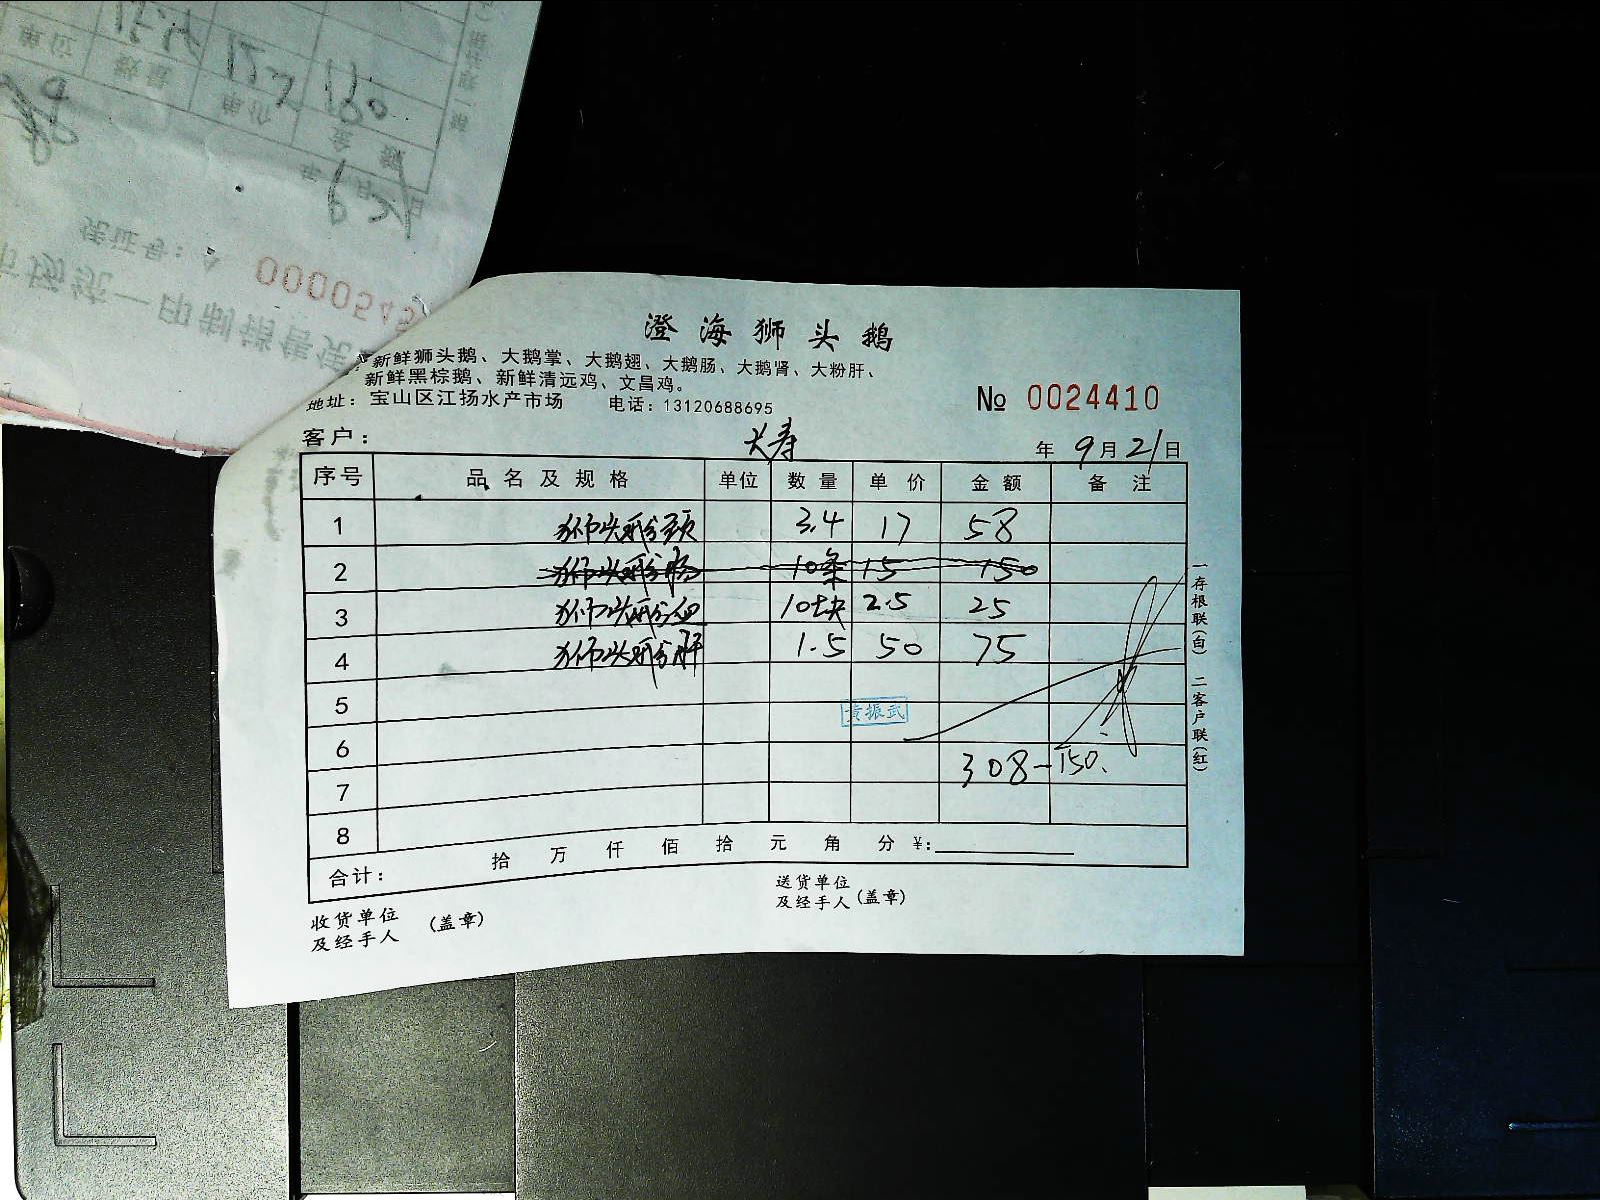 澄海狮头鹅
新鲜狮头鹅、大鹅掌、大鹅翅、大鹅肠、大鹅肾、大粉肝、
新鲜黑棕鹅、新鲜清远鸡、文昌鸡。
地址：宝山区江扬水产市场 电话：13120688695
№ 0024410
客户： 大寿 年 9月21日
序号 品名及规格 单位 数量 单价 金额 备注
1 狮头鹅颈 3.4 17 58
2 狮头鹅肠 10条 15 150
3 狮头鹅血 10块 2.5 25
4 狮头鹅肝 1.5 50 75
5
黄振武
6
308-150.
7
8
合计： 拾 万 仟 佰 拾 元 角 分 ¥:
收货单位及经手人 (盖章)
送货单位及经手人 (盖章)
一存根联(白) 二客户联(红)
单位 数量 单价 金额
17
180
年 6月21日
凭证号：
000054
市场统一印制销售凭